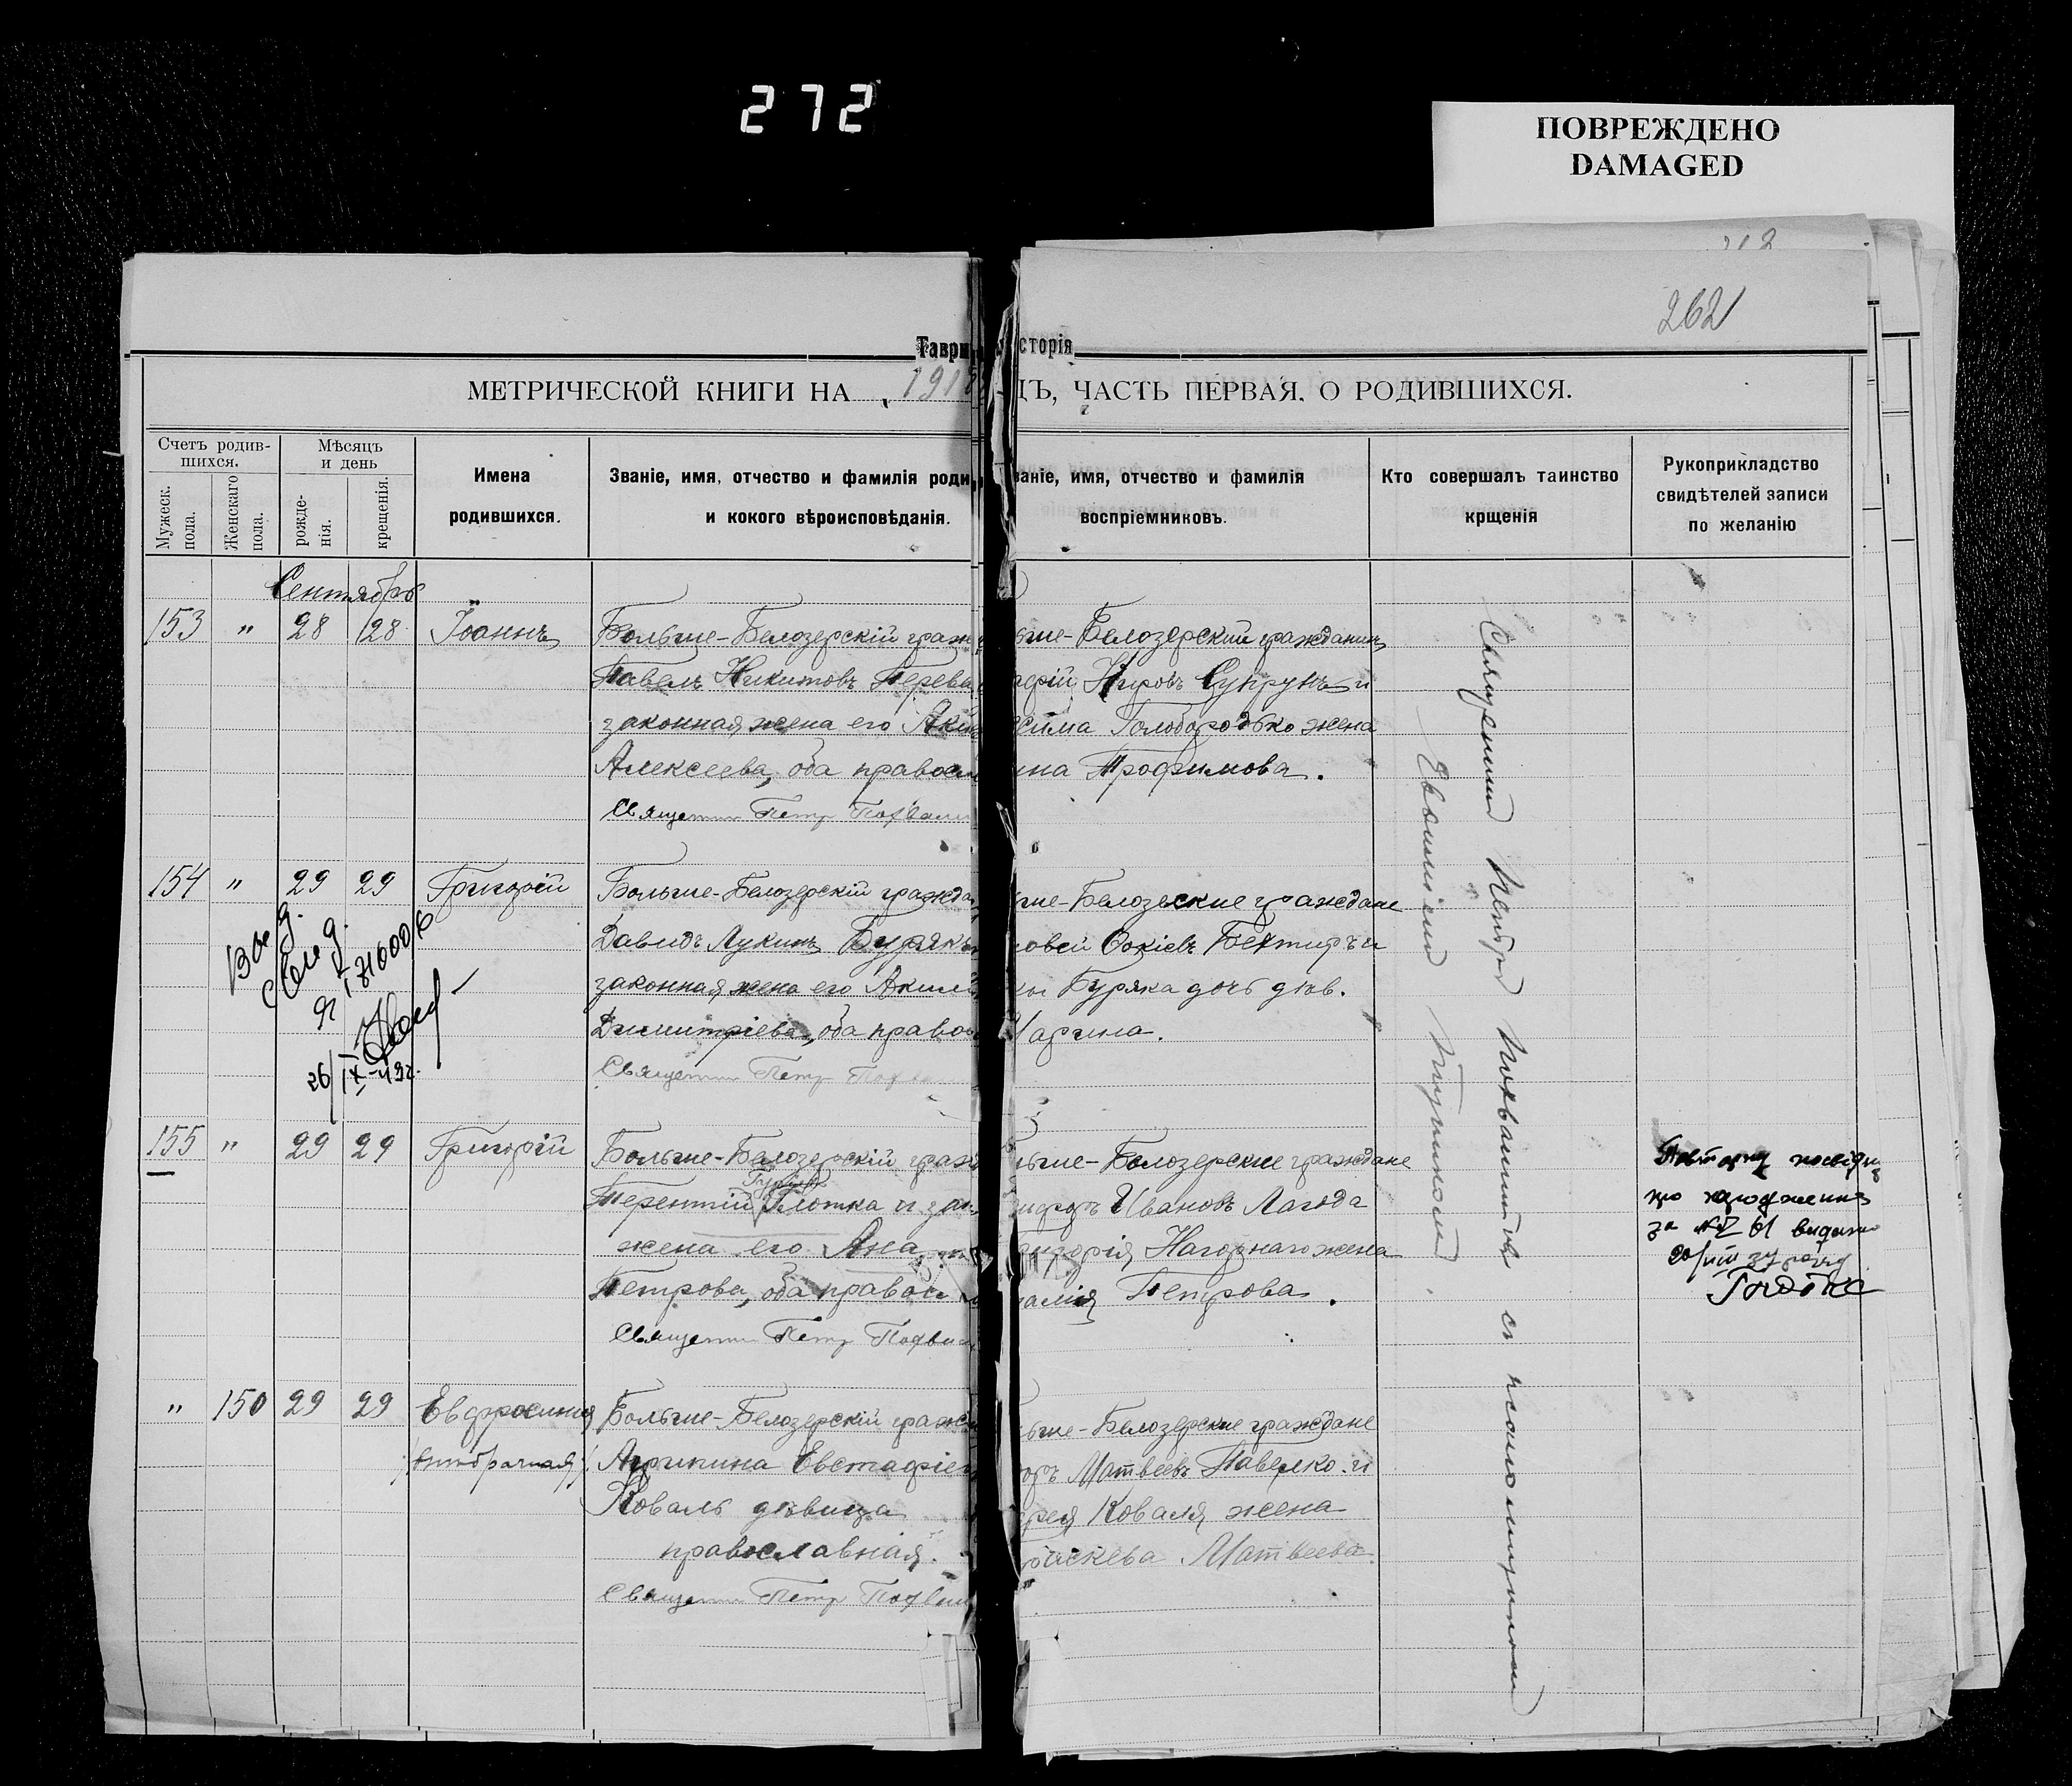 272
ПОВРЕЖДЕНО
DAMAGED
262
Таври
сторія
МЕТРИЧЕСКОЙ КНИГИ НА 1918
ЦЪ, ЧАСТЬ ПЕРВАЯ, О РОДИВШИХСЯ.
Счетъ родив-
шихся.
Мужеск.
пола.
Женскаго
пола.
Мѣсяцъ
и день
рожде-
нія.
крещенія.
Имена
родившихся.
Званіе, имя, отчество и фамилія роди
и кокого вѣроисповѣданія.
ваніе, имя, отчество и фамилія
воспріемниковъ.
Кто совершалъ таинство
крщенія
Рукоприкладство
свидѣтелей записи
по желанію
Сентябрь
153 " 28 28 Іоаннъ
Больше-Белозерскій граж
Павелъ Никитовъ Переви
законная жена его Аки
Алексеева, оба правосл
Священни Петр Похвали
ьше-Белозерский гражданинъ
фій Кировъ Супрунъ и
сима Голобородько жена
ина Трофимова.
154 " 29 29 Григорій
Больше-Белозерскій гражда
Давидъ Лукинъ Бурякъ
законная жена его Акили
Димитріева, оба право
Священни Петр Похвали
ше-Белозеские граждане
овей Бехтиръ и
Буряка дочь дѣв.
Марина.
26/IX-43г.
155 " 29 29 Григорій
Больше-Белозерскій граж
Терентій Глотка и зак
жена его Анна
Петрова, оба правос
Священни Петр Похвал
льше-Белозерские граждане
Ивановъ Лагода
ригорія Нагорнаго жена
алія Петрова.
за № 61 видано
" 150 29 29 Евфросинія
/внѣбрачная/
Больше-Белозерскій граж
Агрипина Евстафіе
Коваль дѣвица
православная.
Священни Петр Похвал
ьше-Белозерские граждане
оръ Матвеевъ Павелко и
рея Коваля жена
раскева Матвеева.
Священник Петръ Похвалитов съ псаломщиком